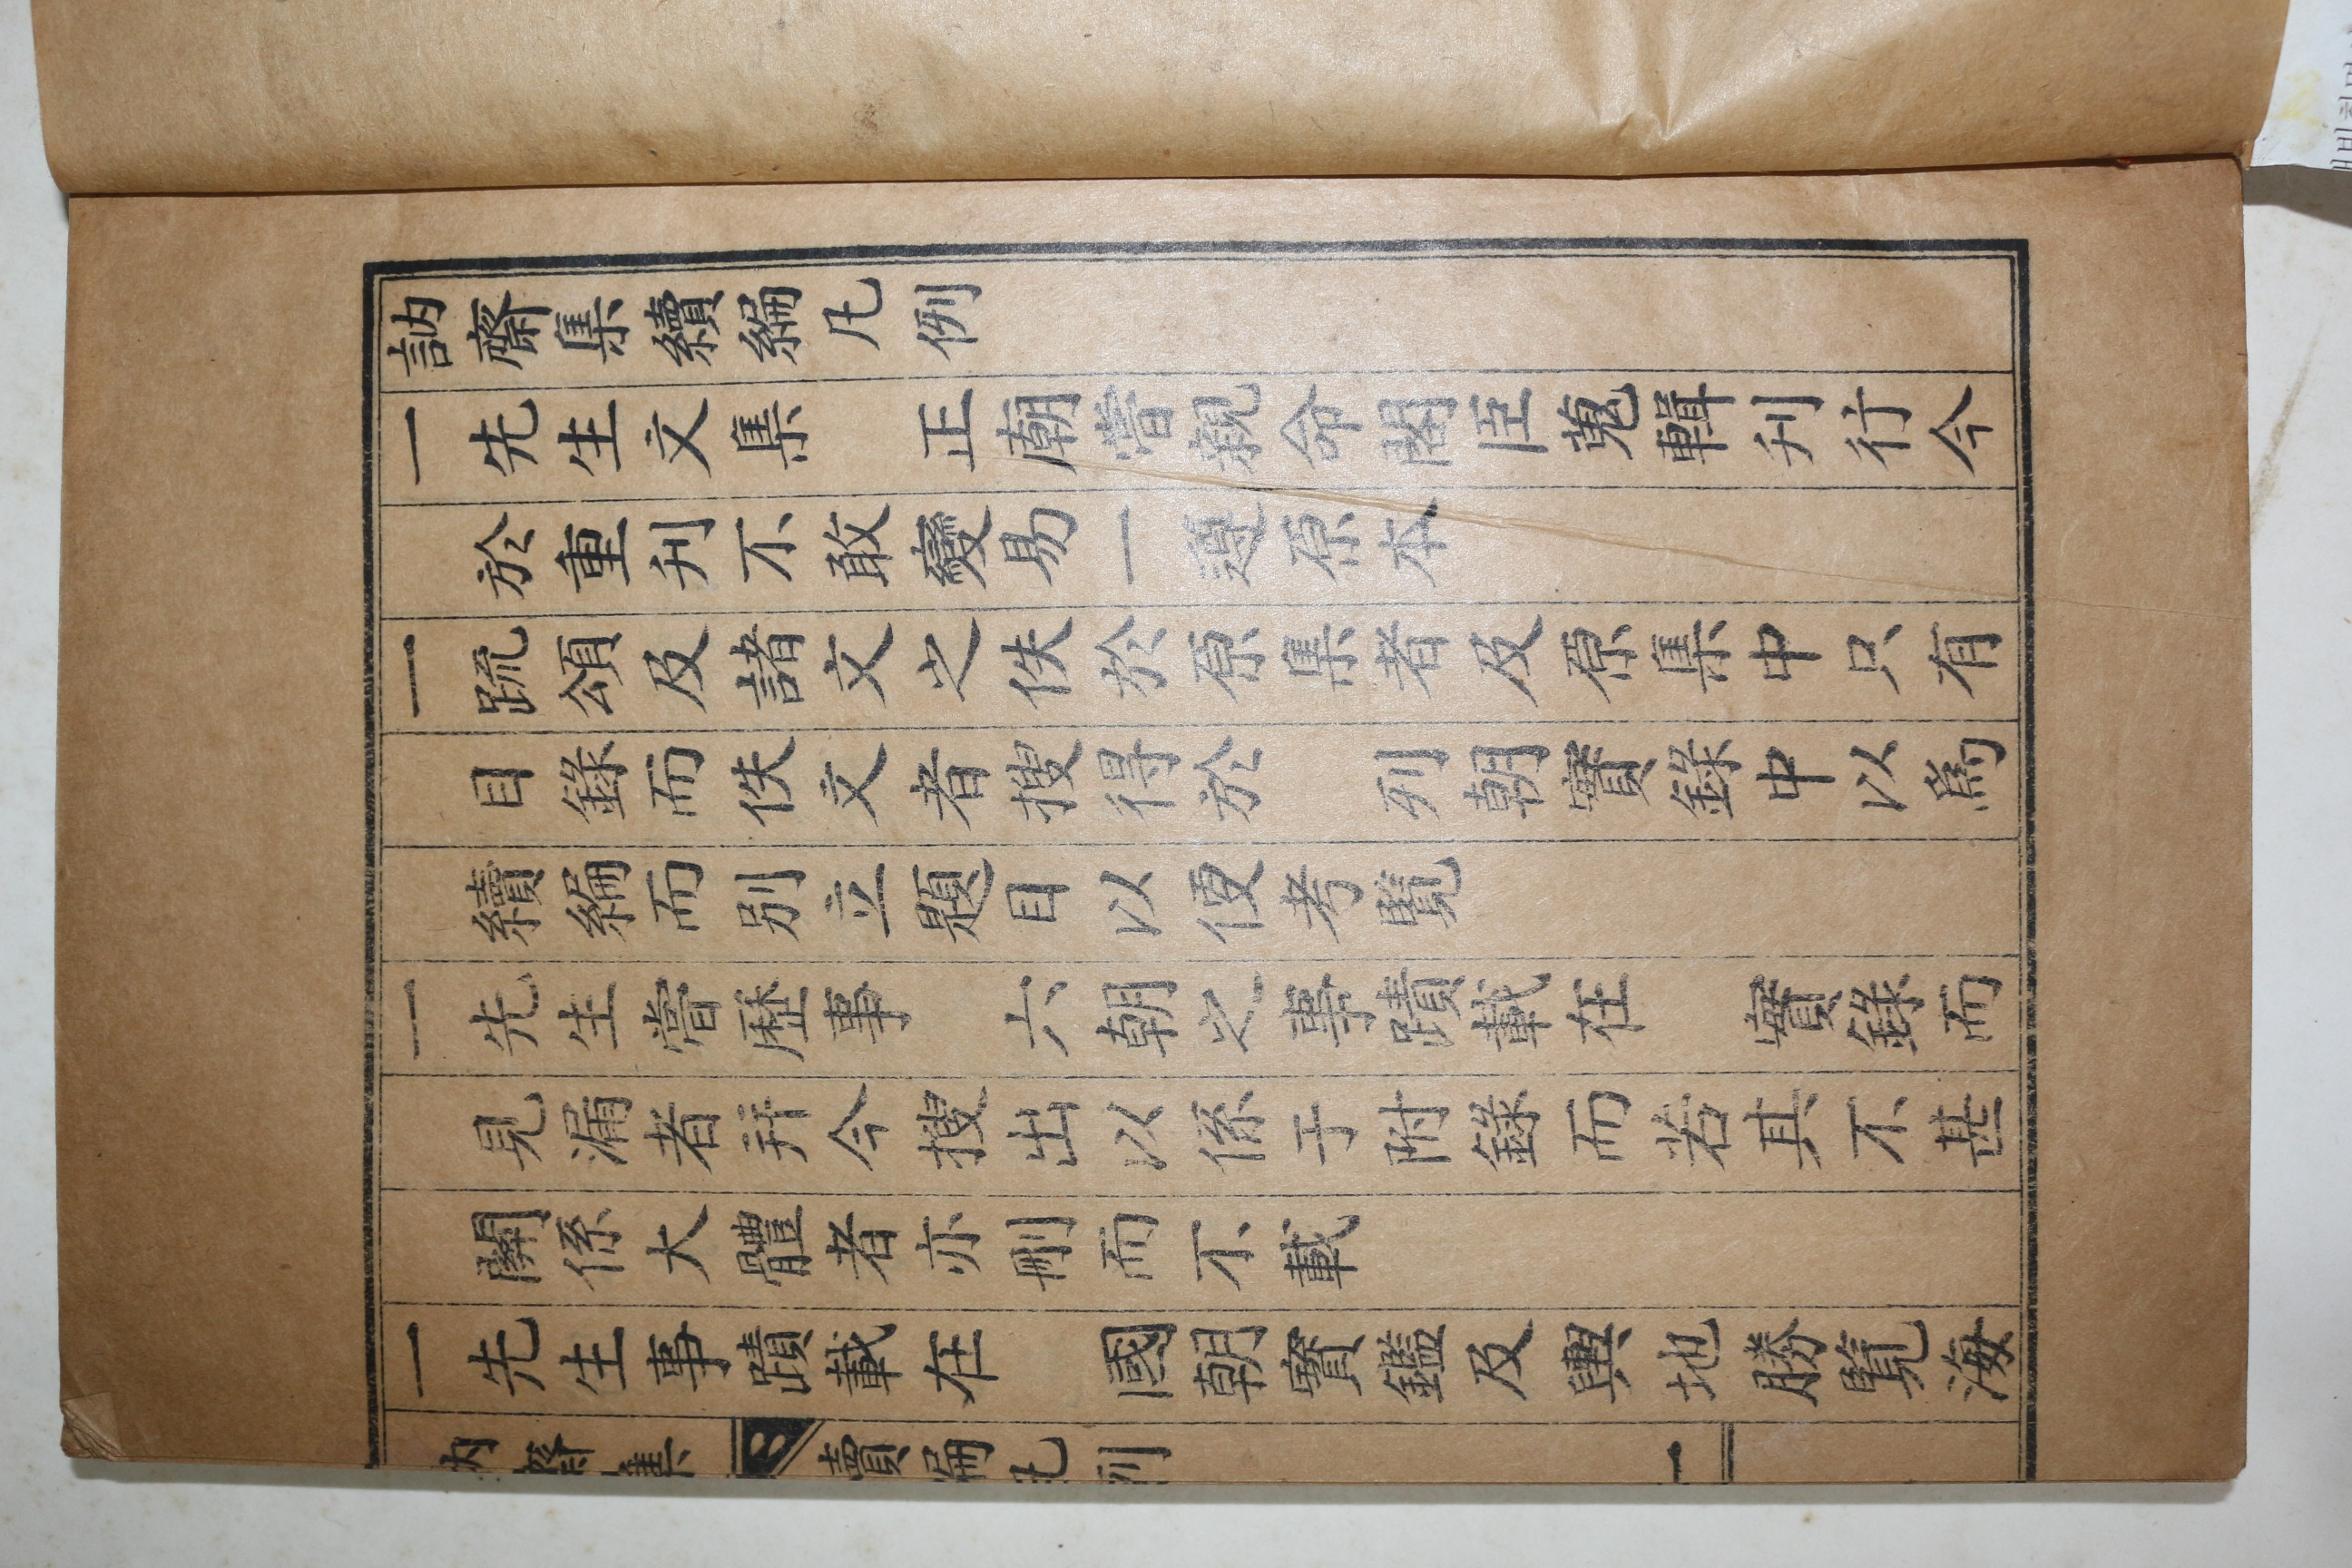 訥齋集續編凡例
一先生文集 正廟嘗親命閣臣蒐輯刋行今
於重刋不敢變易一遵原本
一疏頌及諸文之佚於原集者及原集中只有
目錄而佚文者搜得於 列朝實錄中以爲
續編而別立題目以便考覽
一先生嘗歷事 六朝之事蹟載在 實錄而
見漏者幷今搜出以係于附錄而若其不甚
關係大體者亦刪而不載
一先生事蹟載在 國朝寶鑑及輿地勝覧海
訥齋集 續編凡例 一